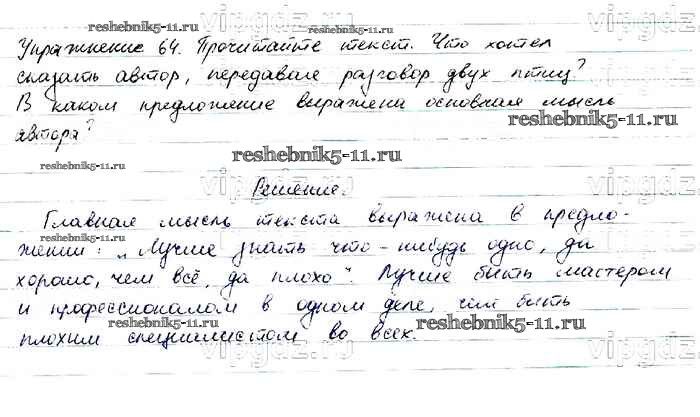 reshebnik5-11.ru
vipgdz.ru
Упражнение 64. Прочитайте текст. Что хотел
сказать автор, передавая разговор двух птиц?
В каком предложение выражена основная мысль
reshebnik5-11.ru
vipgdz.ru
автора?
reshebnik5-11.ru
reshebnik5-11.ru
Решение.
vipgdz.ru
vipgdz.ru
Главная мысль текста выражена в предло-
жении: „Лучше знать что-нибудь одно, да
хорошо, чем всё, да плохо“. Лучше быть мастером
и профессионалом в одном деле, чем быть
reshebnik5-11.ru
reshebnik5-11.ru
плохим специалистом во всех.
vipgdz.ru
vipgdz.ru